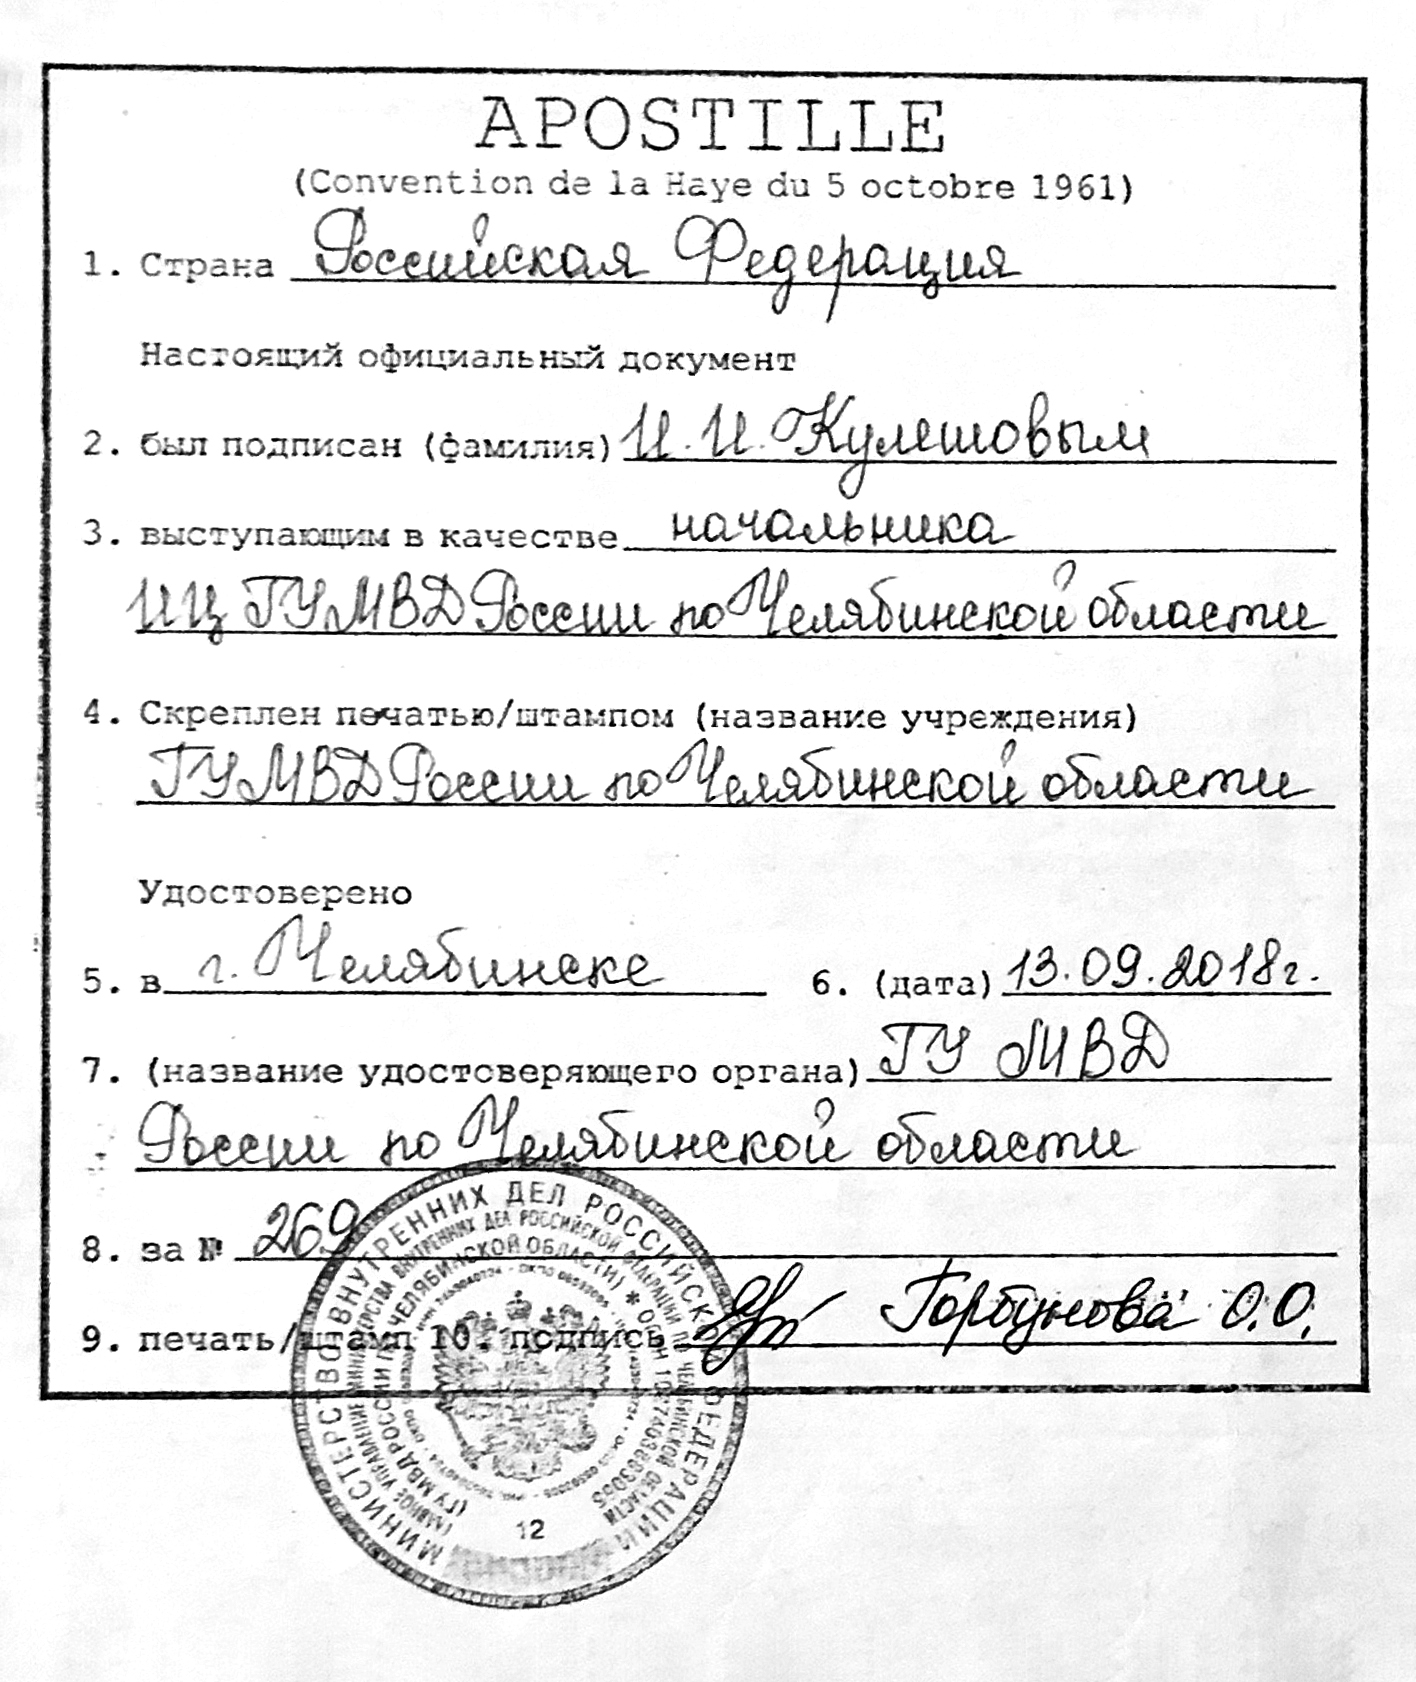 APOSTILLE
(Convention de la Haye du 5 octobre 1961)
1. Страна Российская Федерация
Настоящий официальный документ
2. был подписан (фамилия) И. И. Кулешовым
3. выступающим в качестве начальника
ИЦ ГУ МВД России по Челябинской области
4. Скреплен печатью/штампом (название учреждения)
ГУ МВД России по Челябинской области
Удостоверено
5. в г. Челябинске 6. (дата) 13.09.2018г.
7. (название удостоверяющего органа) ГУ МВД
России по Челябинской области
8. за № 269
9. печать/штамп 10. подпись Горбунова О.О.
МИНИСТЕРСТВО ВНУТРЕННИХ ДЕЛ РОССИЙСКОЙ ФЕДЕРАЦИИ
ГЛАВНОЕ УПРАВЛЕНИЕ МИНИСТЕРСТВА ВНУТРЕННИХ ДЕЛ РОССИЙСКОЙ ФЕДЕРАЦИИ ПО ЧЕЛЯБИНСКОЙ ОБЛАСТИ
(ГУ МВД РОССИИ ПО ЧЕЛЯБИНСКОЙ ОБЛАСТИ) * ОГРН
12